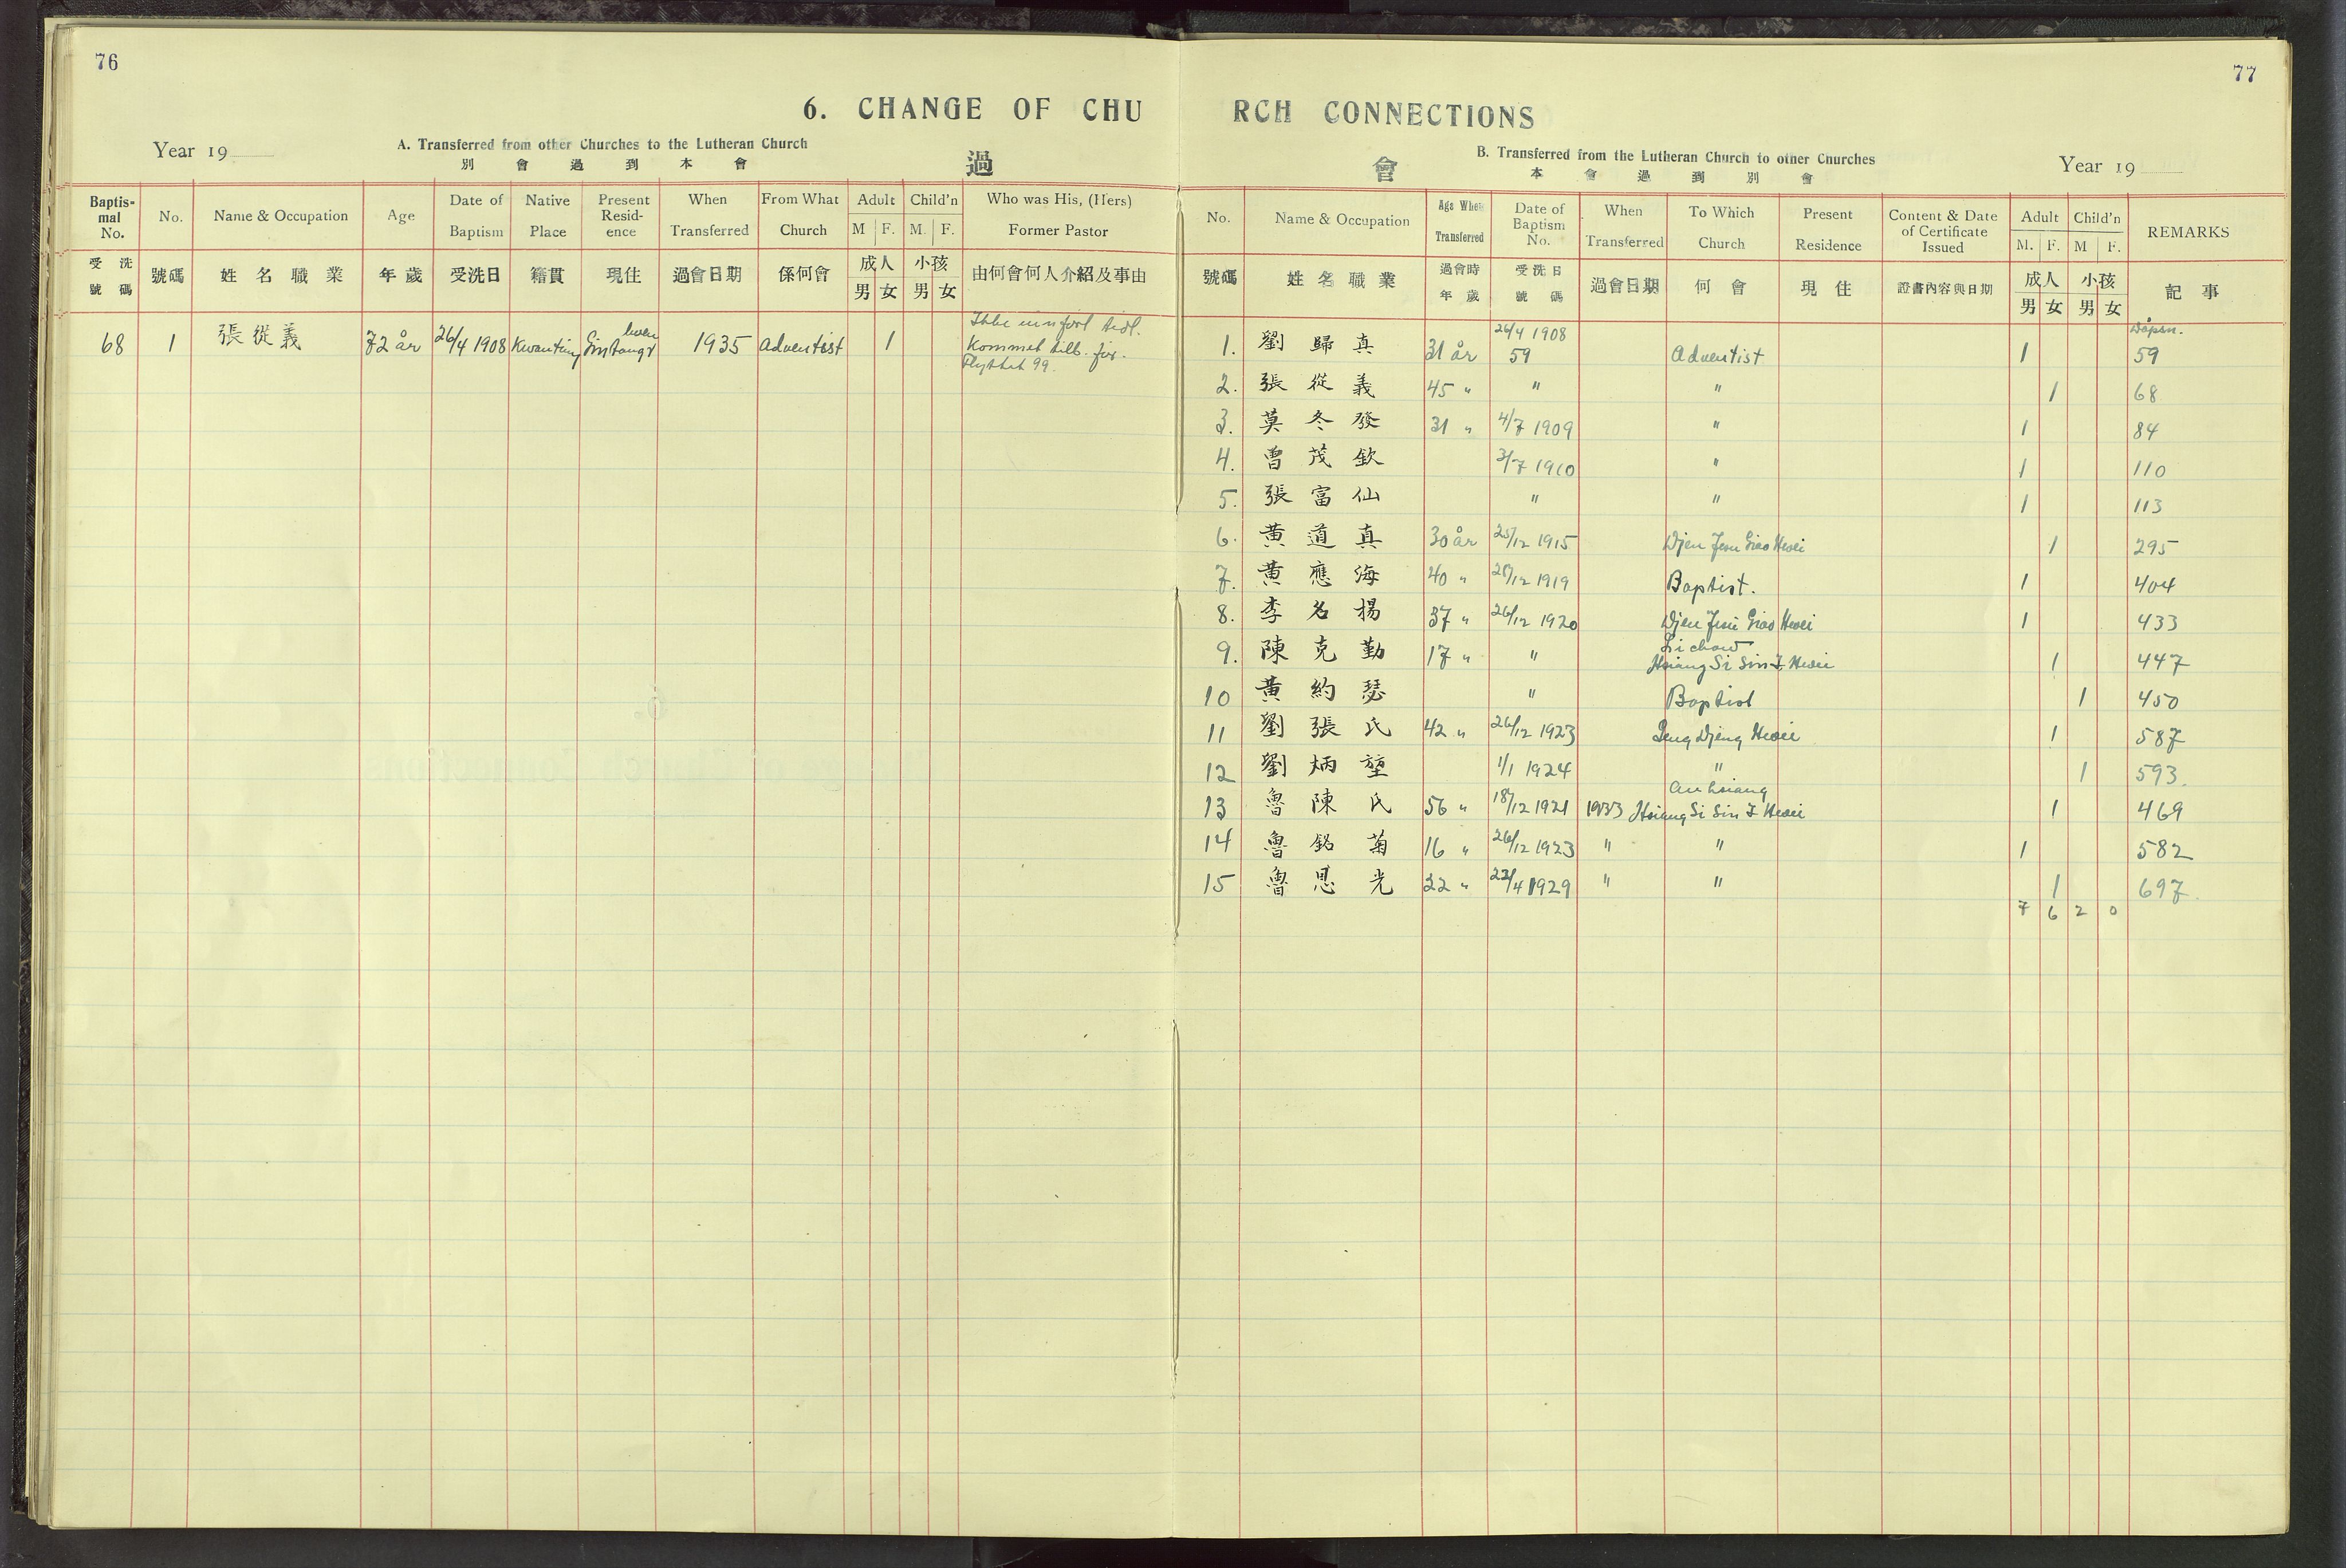 76
6. CHANGE OF CHU
Year 19
A. Transferred from other Churches to the Lutheran Church
別 會 過 到 本 會
過
Baptis-mal No. No. Name & Occupation Age Date of Baptism Native Place Present Resid-ence When Transferred From What Church Adult M F. Child'n M. F. Who was His, (Hers) Former Pastor
受洗號碼 號碼 姓名職業 年歲 受洗日 籍貫 現住 過會日期 係何會 成人 男 女 小孩 男 女 由何會何人介紹及事由
68 1 張從義 72 år 26/4 1908 1935 Adventist 1
Kommet
77
RCH CONNECTIONS
會
B. Transferred from the Lutheran Church to other Churches
本 會 過 到 別 會
Year 19
No. Name & Occupation Age When Transferred Date of Baptism No. When Transferred To Which Church Present Residence Content & Date of Certificate Issued Adult M. F. Child'n M F. REMARKS
號碼 姓名職業 過會時年歲 受洗日號碼 過會日期 何會 現住 證書內容與日期 成人 男 女 小孩 男 女 記事
1. 劉歸真 31 år 26/4 1908 59 Adventist 1 59
2. 張從義 45 " " " 1 68
3. 莫冬發 31 " 4/7 1909 " 1 84
4. 曾茂欽 3/7 1910 " 1 110
5. 張富仙 " " 1 113
6. 黄道真 30 år 25/12 1915 Djen Jesu Giao Hwei 1 295
7. 黄應海 40 " 1919 Baptist. 1 404
8. 李名揚 37 " 26/12 1920 Djen Jesu Giao Hwei 1 433
9. 陳克勤 17 " " Lichow Hsiang Si Sin I Hwei 1 447
10 黃約瑟 " Baptist 1 450
11 劉張氏 42 " 26/12 1923 Hwei 1 587
12 劉炳 1/1 1924 " 1 593.
13 魯陳氏 56 " 18/12 1921 1933 An hsiang Hsiang Si Sin I Hwei 1 469
14 魯銘菊 16 " 26/12 1923 " " 1 582
15 魯恩光 22 " 22/4 1929 " " 1 697.
7 6 2 0